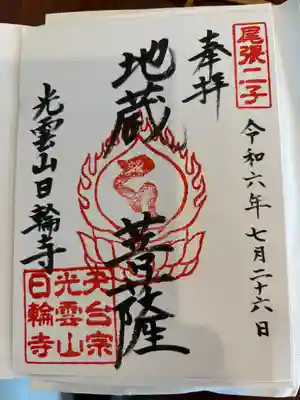 尾張二子
奉拝
令和六年七月二十六日
地蔵菩薩
光雲山日輪寺
天台宗
光雲山
日輪寺